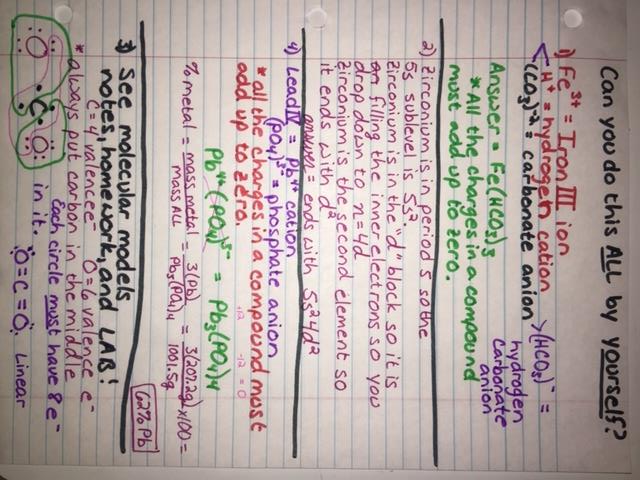 Can you do this ALL by yourself?
1) Fe³⁺ = Iron III ion
H⁺ = hydrogen cation
(CO₃)⁻² = carbonate anion
>(HCO₃)⁻ =
hydrogen
carbonate
anion
Answer = Fe(HCO₃)₃
*All the charges in a compound
must add up to zero.
2) Zirconium is in period 5 so the
5s sublevel is 5s².
Zirconium is in the "d" block so it is
on filling the inner electrons so you
drop down to n=4d
Zirconium is the second element so
it ends with d²
answer = ends with 5s²4d²
4) Lead IV = Pb⁴⁺ cation
(PO₄)³⁻ = phosphate anion
*all the charges in a compound must
add up to zero.
+12 -12 = 0
Pb⁴⁺ (PO₄)³⁻ = Pb₃(PO₄)4
% metal = mass metal / mass ALL = 3(Pb) / Pb₃(PO₄)₄ = 3(207.2g) / 1001.5g x100 =
62% Pb
3) See molecular models
notes, homework, and LAB!
C=4 valence e⁻ O=6 valence e⁻
*always put carbon in the middle
Each circle must have 8 e⁻
in it.
O C O
O=C=O Linear